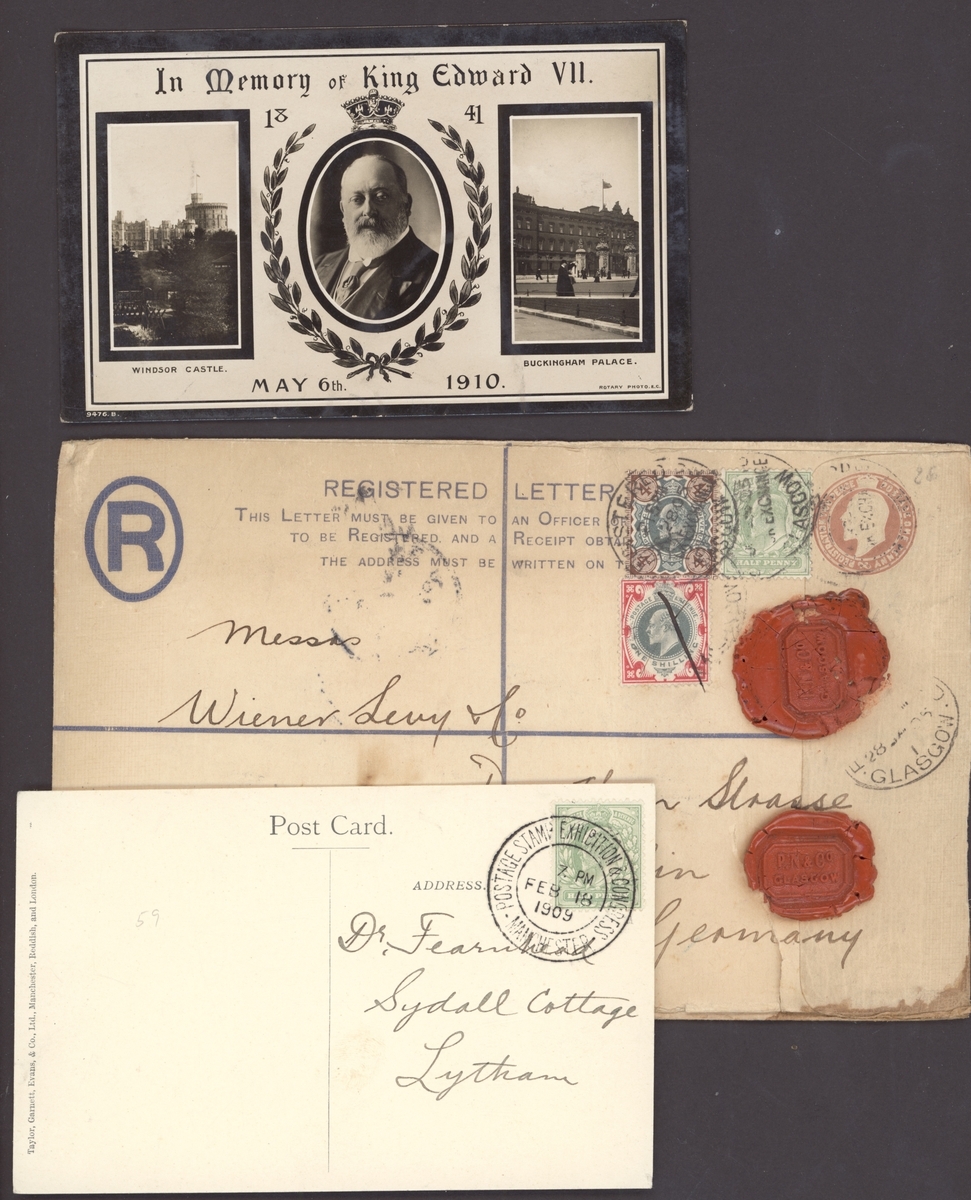 In Memory of King Edward VII.
18 41
WINDSOR CASTLE.
BUCKINGHAM PALACE.
MAY 6th. 1910.
ROTARY PHOTO. E.C.
9476. B.
R
REGISTERED LETTER
THIS LETTER MUST BE GIVEN TO AN OFFICER
TO BE REGISTERED, AND A RECEIPT
THE ADDRESS MUST BE WRITTEN ON
HALF PENNY
POSTAGE REVENUE
ONE SHILLING
Messrs
Wiener Levy & Co
Strasse
Germany
GLASGOW
P.N & Co
GLASGOW
GLASGOW
Post Card.
ADDRESS.
POSTAGE STAMP EXHIBITION & CONGRESS
7 PM
FEB 18
1909
MANCHESTER
59
Dr. Fearnhead
Sydall Cottage
Lytham
Taylor, Garnett, Evans, & Co., Ltd., Manchester, Reddish, and London.